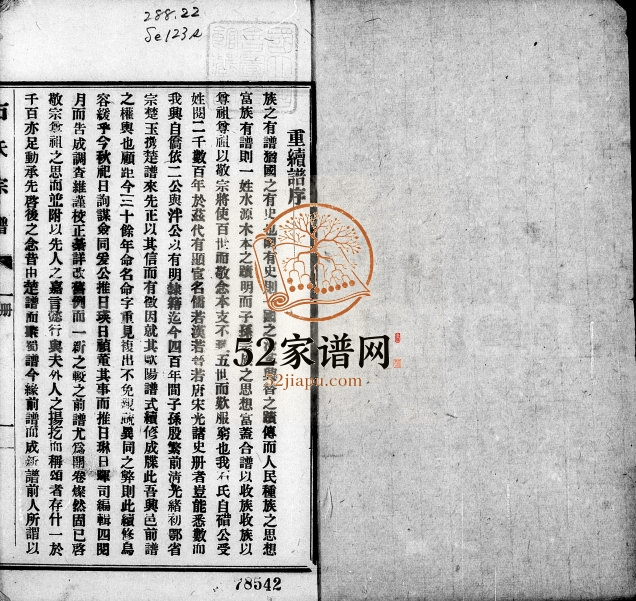 288.22
Se123A
重續譜序
族之有譜猶國之有史也國有史則國之興替之蹟傳而人民種族之思想
富族有譜則一姓水源木本之蹟明而子孫族之思想富蓋合譜以收族收族以
尊祖尊祖以敬宗將使百世而敬念本支不五世而歎服窮也我石氏自碏公受
姓閱二千數百年於茲代有顯宦名儒若漢若晉若唐宋光諸史册者豈能悉數而
我興自僑依二公與泮公以有明隸籍迄今四百年間子孫殷繁前淸光緖初鄂省
宗楚玉撰楚譜來先正以其信而有徵因就其歐陽譜式續修成牒此吾興邑前譜
之權輿也顧距今三十餘年命名命字重見複出不免親疏異同之弊則此續修烏
容緩乎今秋祀日詢謀僉同爰公推日瑛日禎董其事而推日琳日暉司編輯四閱
月而告成調查維謹校正綦詳改舊例而一新之較之前譜尤爲開卷燦然固已啓
敬宗尊祖之思而並附以先人之嘉言懿行與夫外人之揚扢而稱頌者存什一於
千百亦足動承先啓後之念昔由楚譜而彙蜀譜今緣前譜而成新譜前人所謂以
石氏宗譜
一册
52家谱网
52jiapu.com
78542